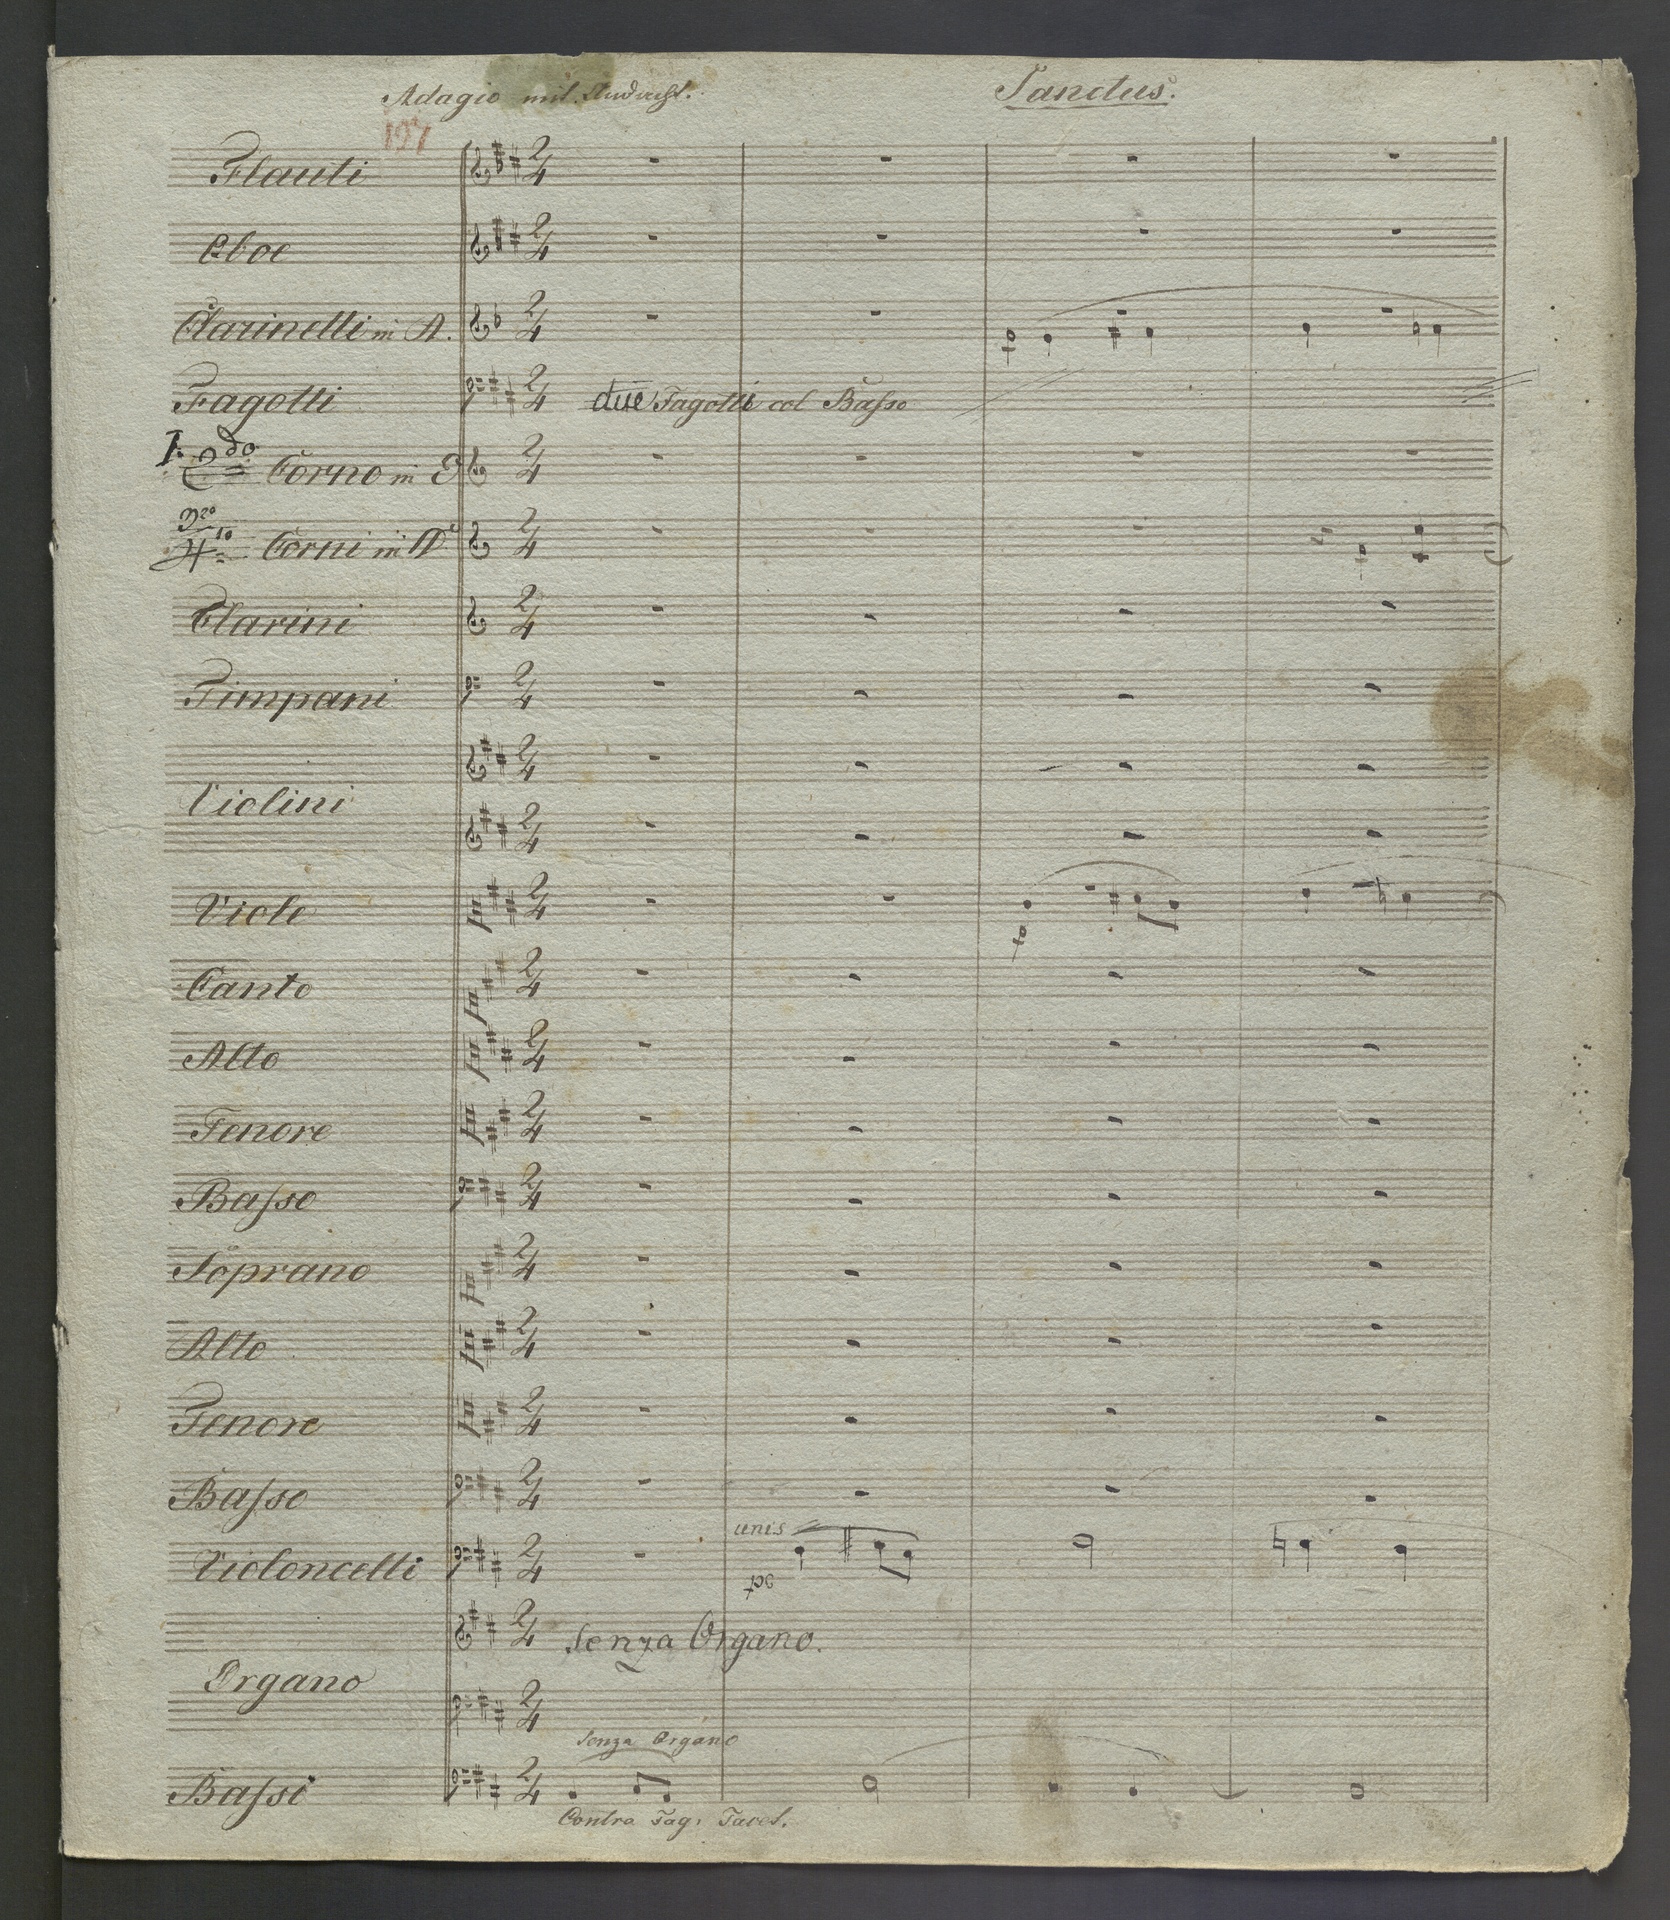 Adagio mit Andacht. Sanctus.
197
Flauti 2/4
Oboe 2/4
Clarinetti in A. 2/4
Fagotti 2/4 due Fagotti col Basso
I: 2do Corno in E 2/4
3zo 4to Corni in D 2/4
Clarini 2/4
Timpani 2/4
2/4
Violini
2/4
Viole 2/4
Canto 2/4
Alto 2/4
Tenore 2/4
Basso 2/4
Soprano 2/4
Alto 2/4
Tenore 2/4
Basso 2/4
unis
Violoncelli 2/4
po
2/4 Senza Organo.
Organo
2/4
Senza Organo
Bassi 2/4
Contra Fag: Tacet.